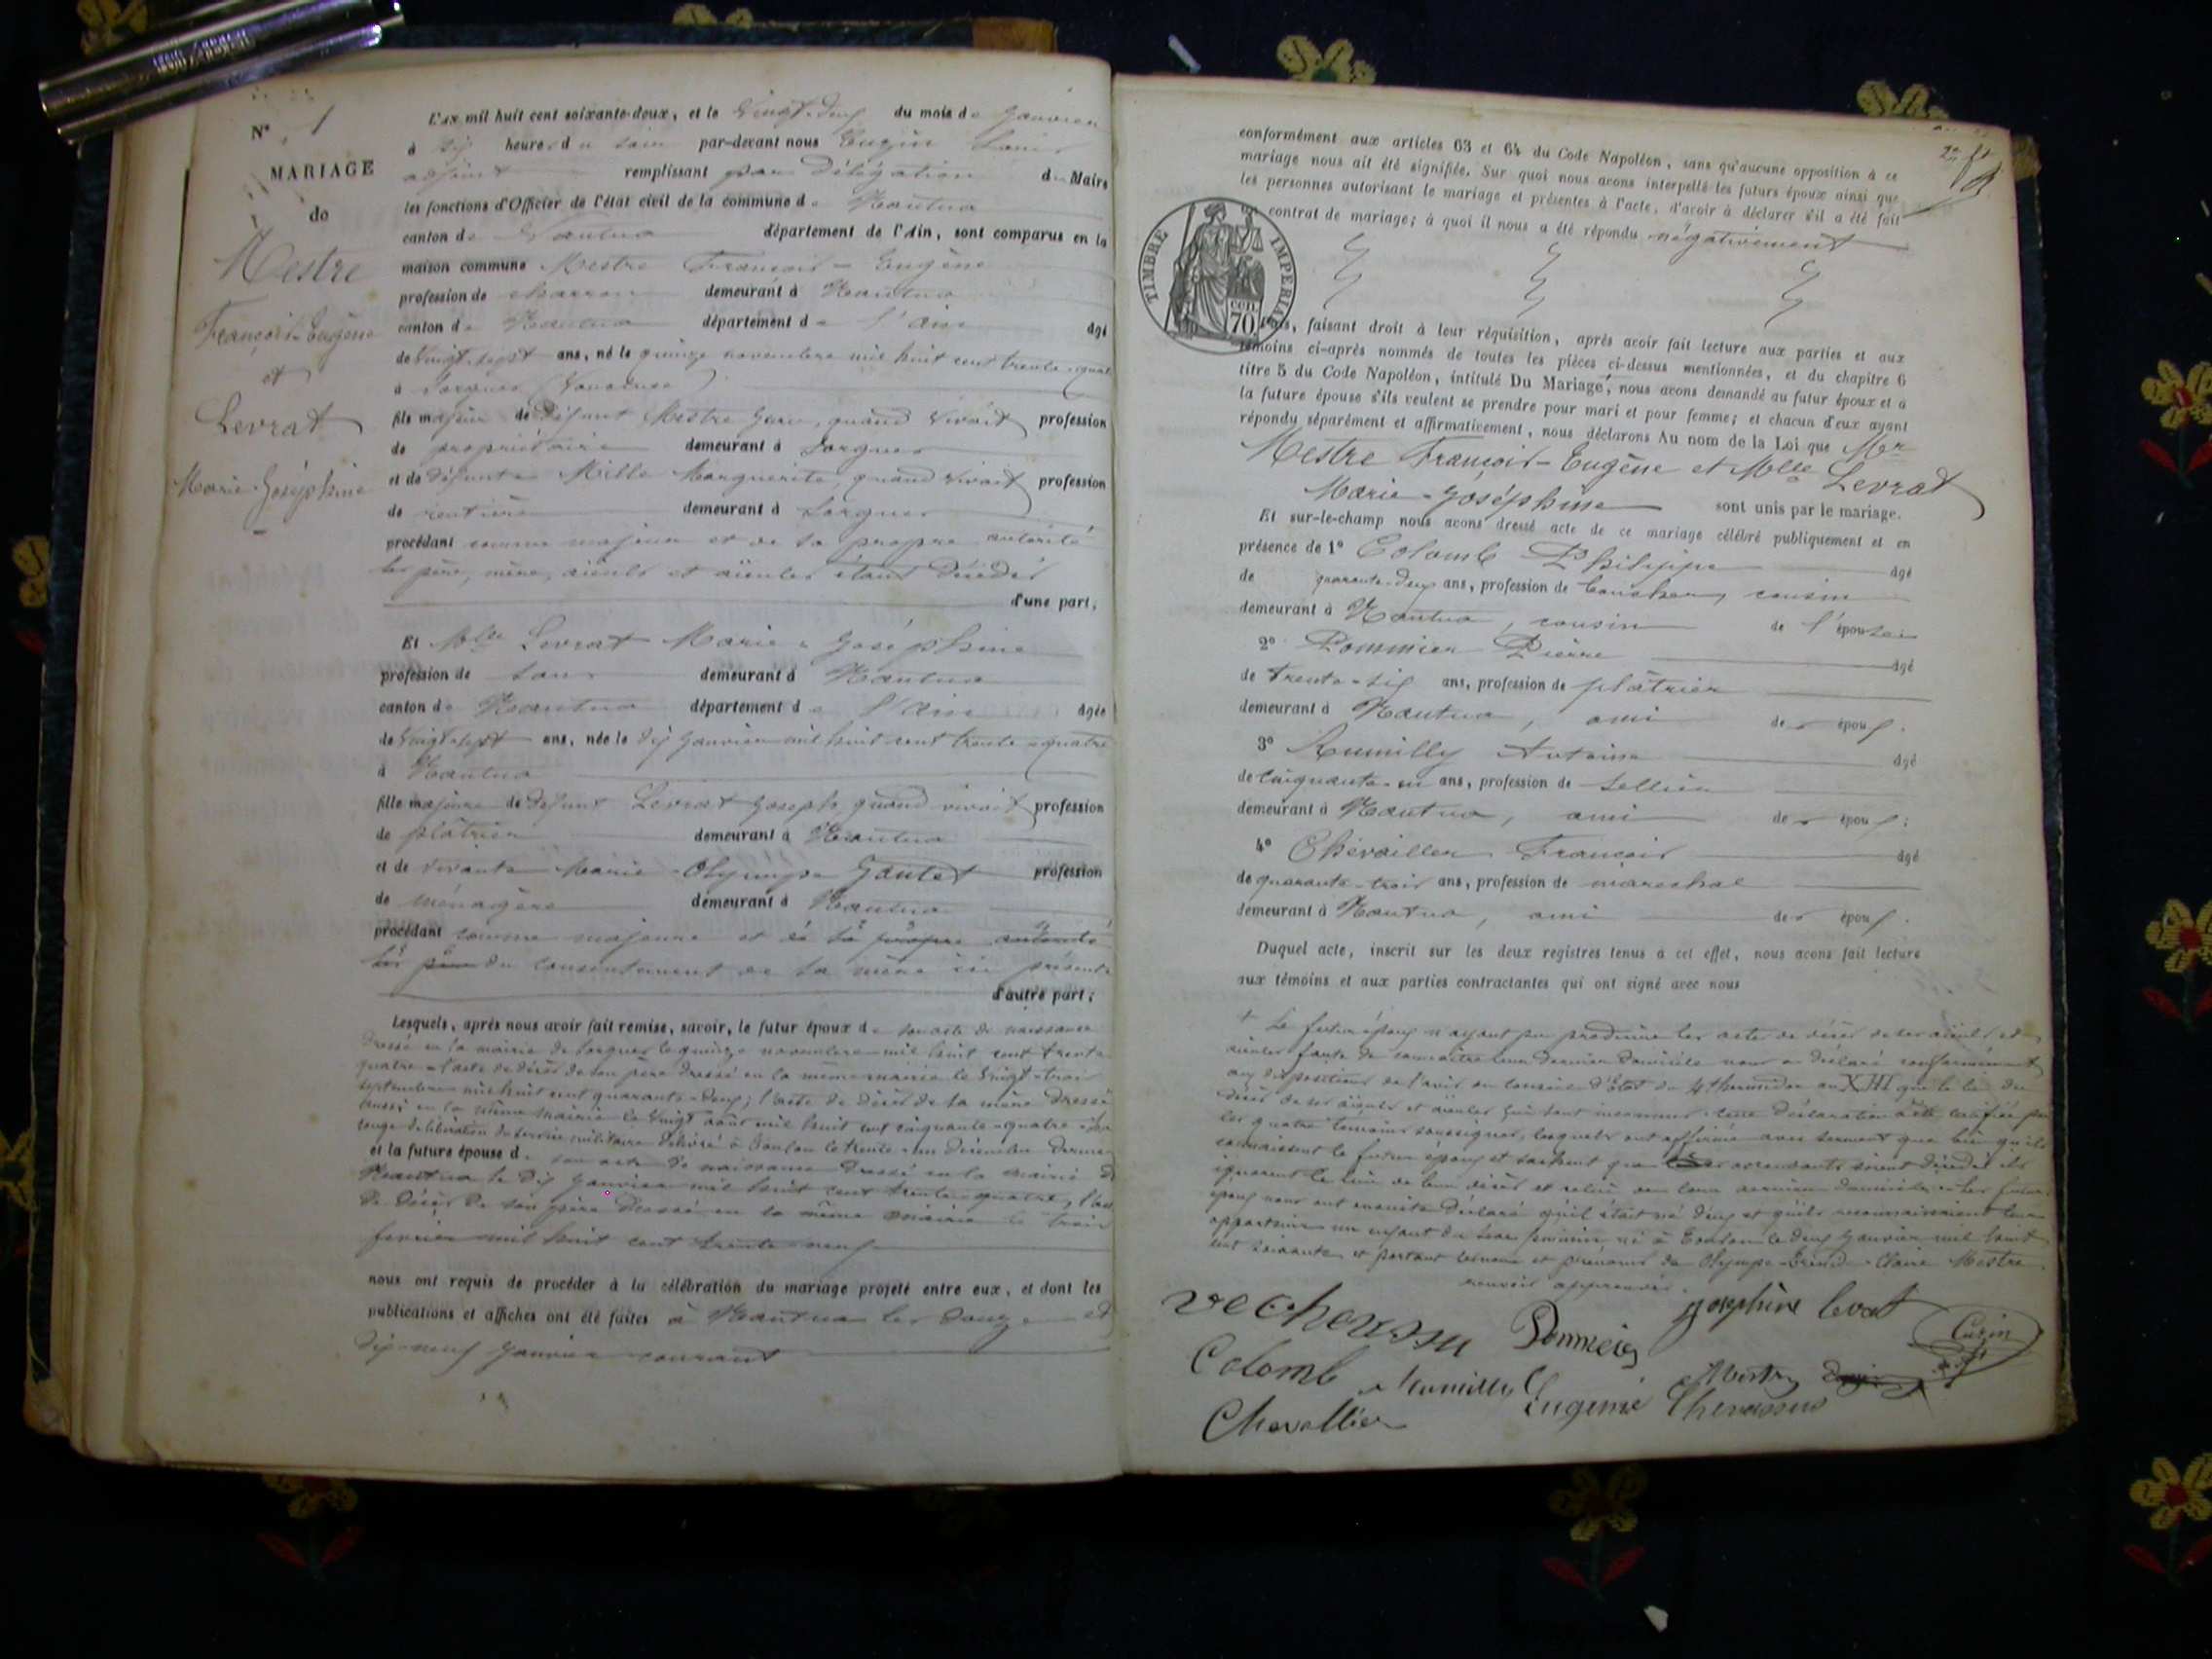 N° 1
MARIAGE
de
Mestre
François-Eugène
et
Levrat
Marie-Joséphine
L'AN mil huit cent soixante-deux, et le vingt-deux du mois de Janvier
à six heures du soir par-devant nous
adjoint remplissant par délégation du Maire
les fonctions d'Officier de l'état civil de la commune de Nantua
canton de Nantua département de l'Ain, sont comparus en la
maison commune Mestre François-Eugène
profession de charron demeurant à Nantua
canton de Nantua département de l'Ain âgé
de vingt-sept ans, né le quinze novembre mil huit cent trente-quatre
à Sorgues (Vaucluse)
fils majeur de défunt Mestre quand vivait profession
de propriétaire demeurant à Sorgues
et de défunte Mille Marguerite, quand vivait profession
de rentière demeurant à Sorgues
procédant comme majeur et de sa propre autorité
les père, mère, aïeuls et aïeules étant décédés
d'une part;
Et Mlle Levrat Marie-Joséphine
profession de sans demeurant à Nantua
canton de Nantua département de l'Ain âgée
de vingt-sept ans, née le dix Janvier mil huit cent trente-quatre
à Nantua
fille majeure de défunt Levrat Joseph quand vivait profession
de plâtrier demeurant à Nantua
et de vivante Marie-Olympe Goutet profession
de ménagère demeurant à Nantua
procédant comme majeure et de sa propre autorité
les père du consentement de sa mère ici présente
d'autre part;
Lesquels, après nous avoir fait remise, savoir, le futur époux de son acte de naissance
dressé en la mairie de Sorgues le quinze novembre mil huit cent trente
quatre l'acte de décès de son père dressé en la même mairie le vingt-trois
septembre mil huit cent quarante-deux; l'acte de décès de sa mère dressé
aussi en la même mairie le vingt août mil huit cent cinquante-quatre
congé de libération du service militaire délivré à Toulon le trente-un décembre dernier
et la future épouse de son acte de naissance dressé en la mairie de
Nantua le dix Janvier mil huit cent trente-quatre, l'acte
de décès de son père dressé en la même mairie le trois
février mil huit cent trente-neuf
nous ont requis de procéder à la célébration du mariage projeté entre eux, et dont les
publications et affiches ont été faites à Nantua les douze et
dix-neuf Janvier courant
conformément aux articles 63 et 64 du Code Napoléon, sans qu'aucune opposition à ce
mariage nous ait été signifiée. Sur quoi nous avons interpellé les futurs époux ainsi que
les personnes autorisant le mariage et présentes à l'acte, d'avoir à déclarer s'il a été fait
contrat de mariage; à quoi il nous a été répondu négativement
TIMBRE IMPERIAL
cen. 70
faisant droit à leur réquisition, après avoir fait lecture aux parties et aux
témoins ci-après nommés de toutes les pièces ci-dessus mentionnées, et du chapitre 6
titre 5 du Code Napoléon, intitulé Du Mariage, nous avons demandé au futur époux et à
la future épouse s'ils veulent se prendre pour mari et pour femme; et chacun d'eux ayant
répondu séparément et affirmativement, nous déclarons Au nom de la Loi que Mr
Mestre François-Eugène et Mlle Levrat
Marie-Joséphine sont unis par le mariage.
Et sur-le-champ nous avons dressé acte de ce mariage célébré publiquement et en
présence de 1° Colomb Philippe âgé
de quarante-deux ans, profession de boucher, cousin
demeurant à Nantua, cousin de l'épouse
2° Pommier Pierre âgé
de trente-six ans, profession de plâtrier
demeurant à Nantua, ami des époux.
3° Rumilly Antoine âgé
de cinquante-un ans, profession de sellier
demeurant à Nantua, ami des époux;
4° Chevallier François âgé
de quarante-trois ans, profession de maréchal
demeurant à Nantua, ami des époux.
Duquel acte, inscrit sur les deux registres tenus à cet effet, nous avons fait lecture
aux témoins et aux parties contractantes qui ont signé avec nous
+ Le futur époux n'ayant pu produire les actes de décès de ses aïeuls et
aïeules faute de connaître leur dernier domicile nous a déclaré conformément
aux dispositions de l'avis du conseil d'État du 4 thermidor an XIII que le lieu du
décès de ses aïeuls et aïeules lui sont inconnus. Cette déclaration a été certifiée par
les quatre témoins soussignés, lesquels ont affirmé avec serment que bien qu'ils
connaissent le futur époux et sachent que ses ascendants soient décédés ils
ignorent le lieu de leur décès et celui de leur dernier domicile. Les futurs
époux nous ont ensuite déclaré qu'il était né d'eux et qu'ils reconnaissaient leur
appartenir un enfant du sexe féminin né à Toulon le deux Janvier mil huit
cent soixante et portant les noms et prénoms de Olympe Claire Mestre
renvoi approuvé.
Pommier Josephine levrat
Colomb Rumilly Mestre
Chevallier Eugenie Chevassus